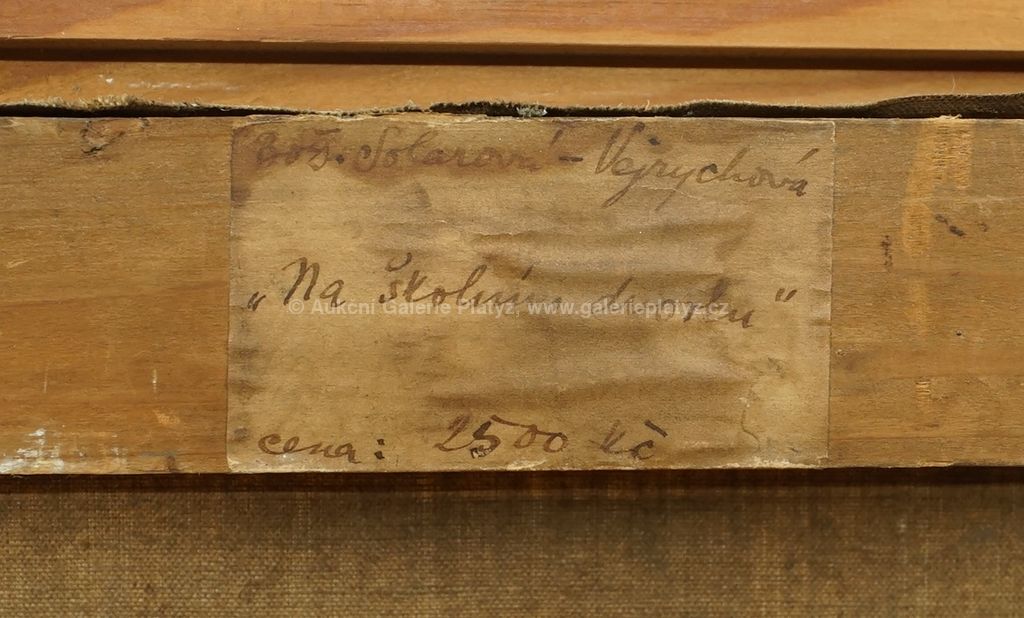 Bož. Solarová - Vejrychová
„Na školním dvorku"
© Aukční Galerie Platýz, www.galerieplatyz.cz
cena: 2500 Kč